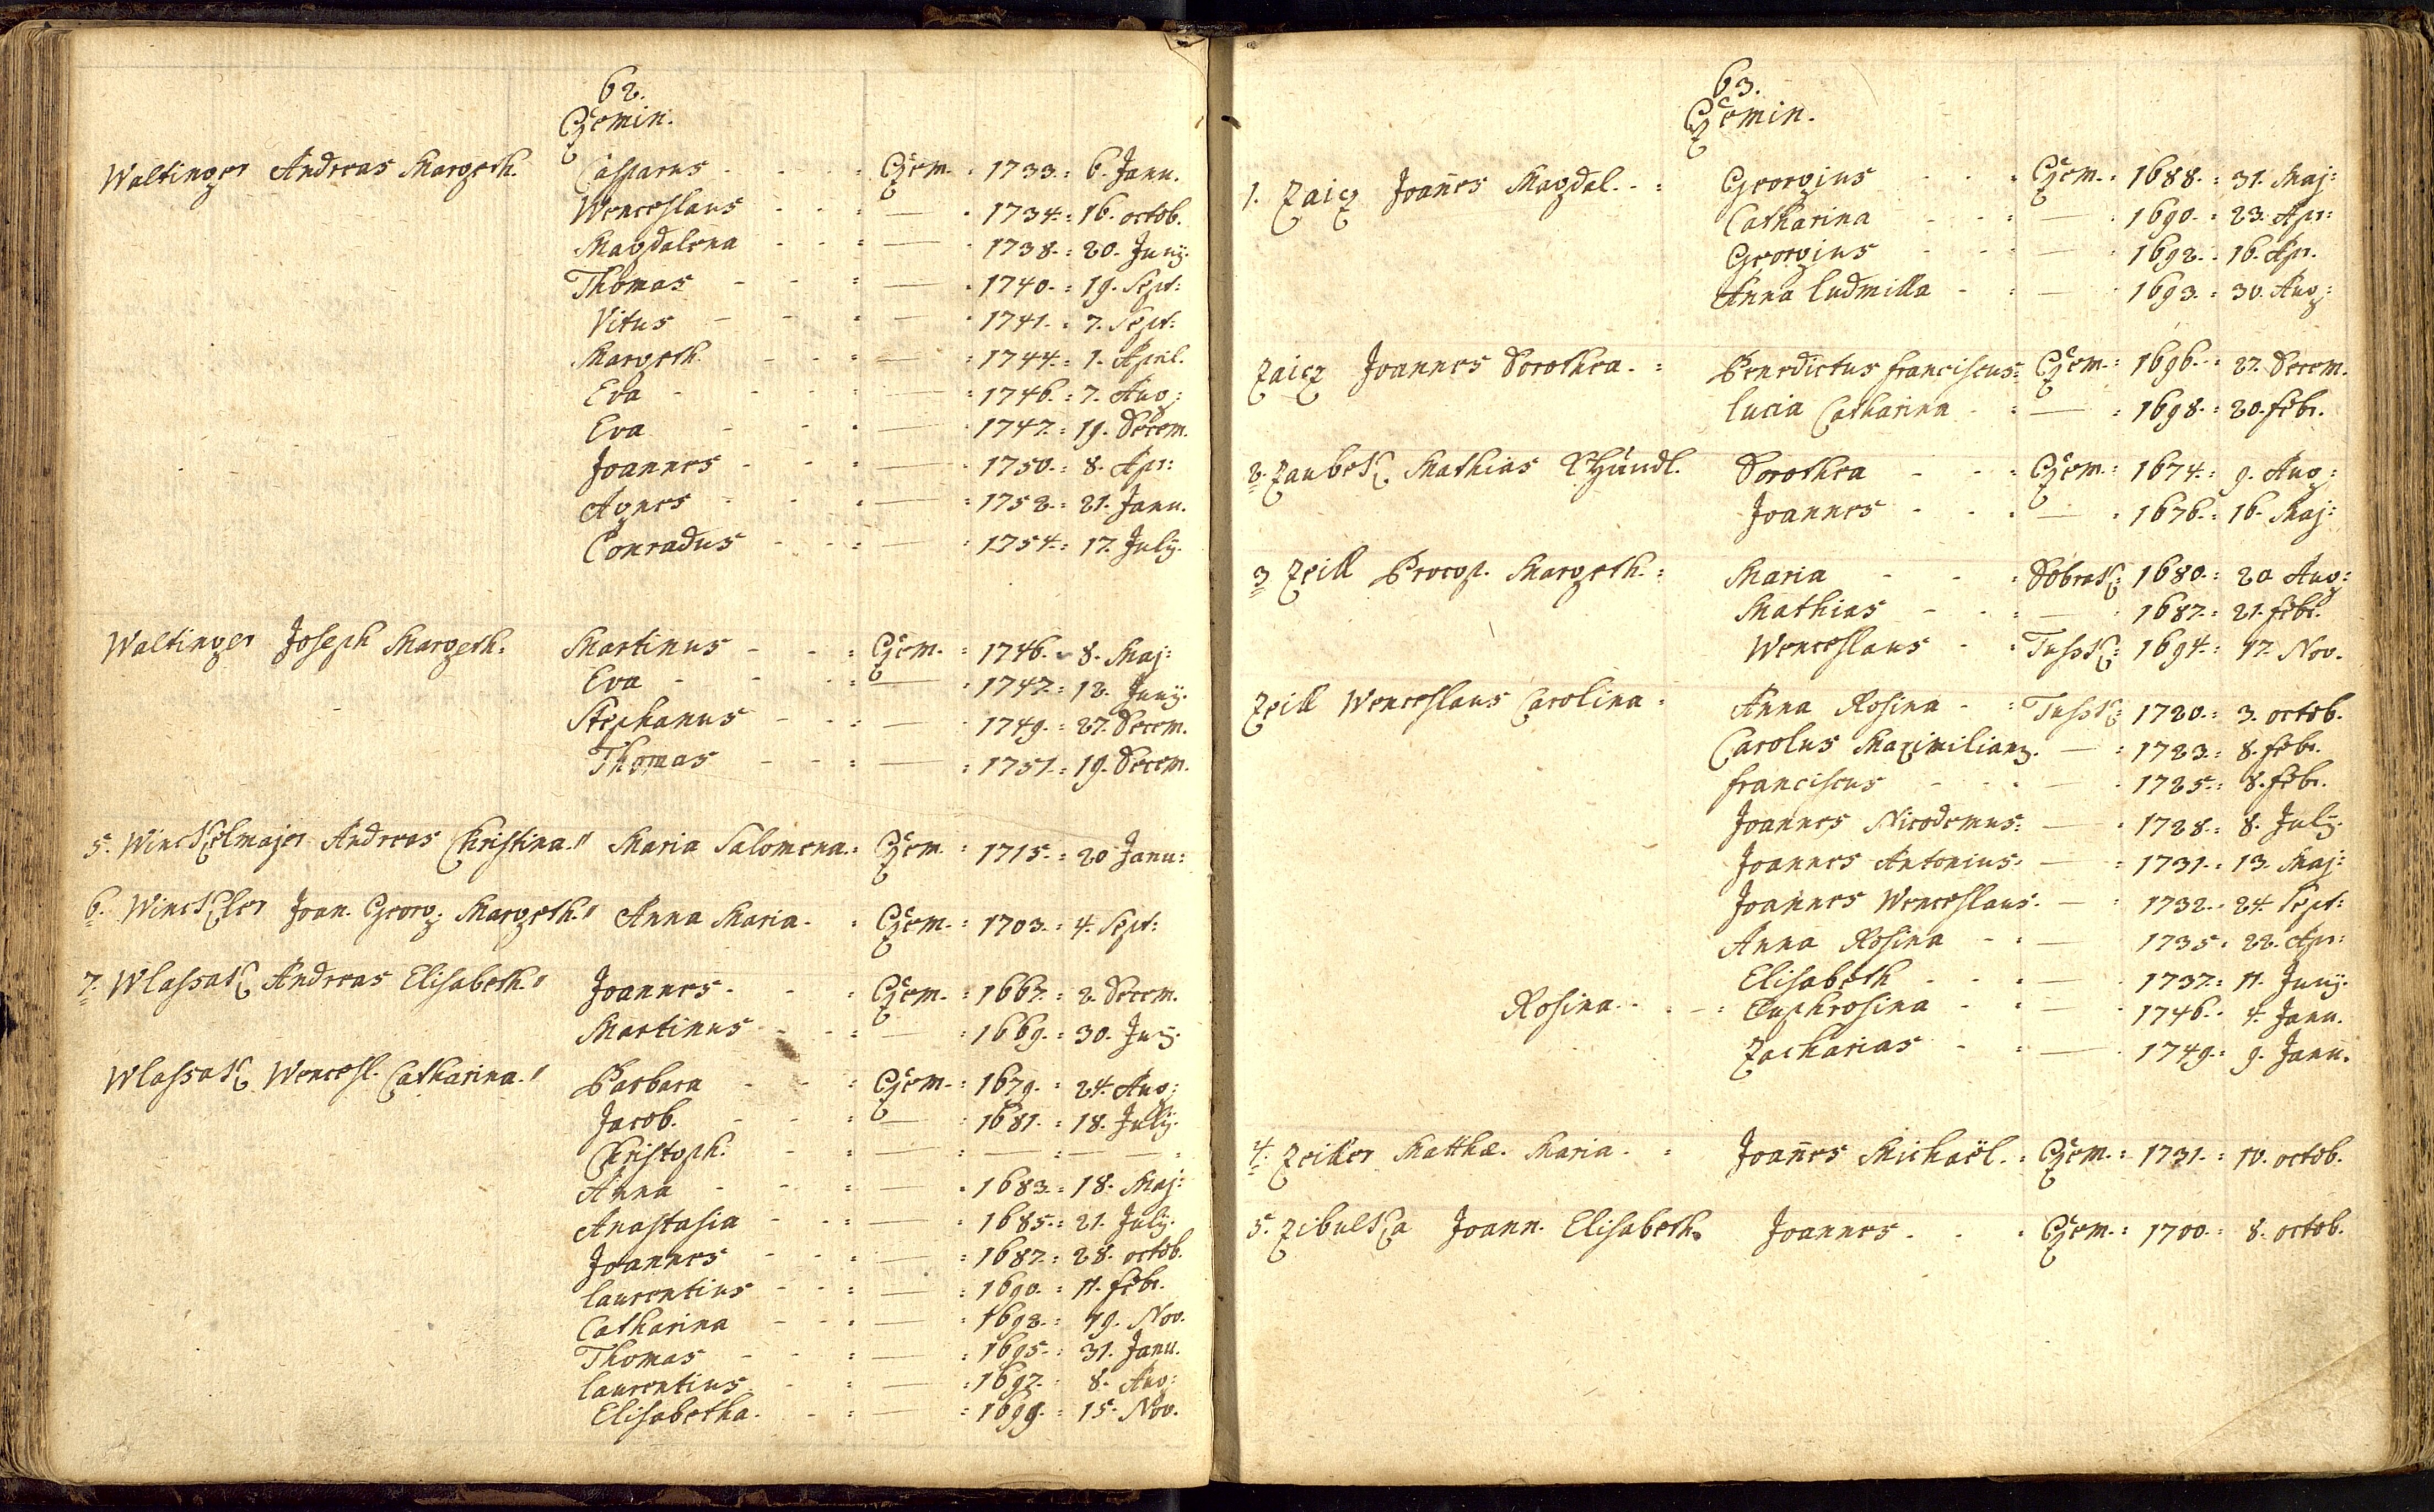 62.
Czemin.
Waltinger Andreas Margeth. Casparus - - : Czem. : 1733. : 6. Janu.
Wenceslaus - - : — : 1734. : 16. octob.
Magdalena - - : — : 1738. : 20. Junÿ.
Thomas - - : — : 1740. : 19. Sept:
Vitus - - : — : 1741. : 7. Sept:
Margeth. - - : — : 1744. : 1. April.
Eva - - : — : 1746. : 7. Aug:
Eva - - : — : 1747. : 19. Decem.
Joannes - - : — : 1750. : 8. Apr:
Agnes - - : — : 1752. : 21. Janu.
Conradus - - : — : 1754. : 17. Julÿ.
Waltinger Joseph Margeth. Martinus - - : Czem. : 1746. : 8. Maj:
Eva - - : — : 1747. : 12. Junÿ.
Stephanus - - : — : 1749. : 27. Decem.
Thomas - - : — : 1751. : 19. Decem.
5. Winckelmajer Andreas Christina." Maria Salomena. : Czem. : 1715. : 20 Janu:
6. Winckler Joan. Georg. Margeth." Anna Maria. : Czem. : 1703. : 4. Sept:
7. Wlassak Andreas Elisabeth." Joannes. - : Czem. : 1667. : 2. Decem.
Martinus - - : — : 1669. : 30.
Wlassak Wencesl. Catharina." Barbara - - : Czem. : 1679. : 24. Aug:
Jacob. - - : — : 1681. : 18. Julÿ.
Christoph. - : — : — : — —
Anna - - : — : 1683. : 18. Maj:
Anastasia - - : — : 1685. : 21. Julÿ.
Joannes - - : — : 1687. : 28. octob.
Laurentius - - : — : 1690. : 11. febr.
Catharina - - : — : 1692. : 19. Nov.
Thomas - - : — : 1695. : 31. Janu.
Laurentius - : — : 1697. : 8. Aug:
Elisabetha. - : — : 1699. : 15. Nov.
63.
Czemin.
1. Zaicz Joañes Magdal. - : Georgius - : Czem. : 1688. : 31. Maj:
Catharina - - : — : 1690. : 23. Apr:
Georgius - - : — : 1692. : 16. Apr.
Anna Ludmilla - : — : 1693. : 30. Aug:
Zaicz Joannes Dorothea. : Benedictus franciscus : Czem. : 1696. : 27. Decem.
Lucia Catharina - : — : 1698. : 20. febr.
2. Zaubek Mathias Dorothea - - : Czem. : 1674. : 9. Aug:
Joannes - - : — : 1676. : 16. Maj:
3 Zeill Procop. Margeth. : Maria - - : Dobrak: 1680. : 20 Aug:
Mathias - - : — : 1687. : 21. febr.
Wenceslaus - : Tussk: 1694. : 17. Nov.
Zeill Wenceslaus Carolina : Anna Rosina - : Tussk: 1720. : 3. octob.
Carolus Maximilian9. — : 1723. : 8. febr.
franciscus - - : — : 1725. : 8. febr.
Joannes Nicodemus: — : 1728. : 8. Julÿ.
Joannes Antonius: — : 1731. : 13. Maj:
Joannes Wenceslaus. — : 1732. : 24. Sept:
Anna Rosina - : — 1735. : 22. Apr:
Elisabeth - - : — : 1737. : 11. Junÿ.
Rosina. - - : Euphrosina - : — : 1746. : 4. Janu.
Zacharias - : — : 1749. : 9. Janu.
4. Zeiller Matthæ. Maria. : Joañes Michaël. : Czem. : 1731. : 10. octob.
5. Zibulka Joann. Elisabeth. Joannes. - : Czem. : 1700. : 8. octob.